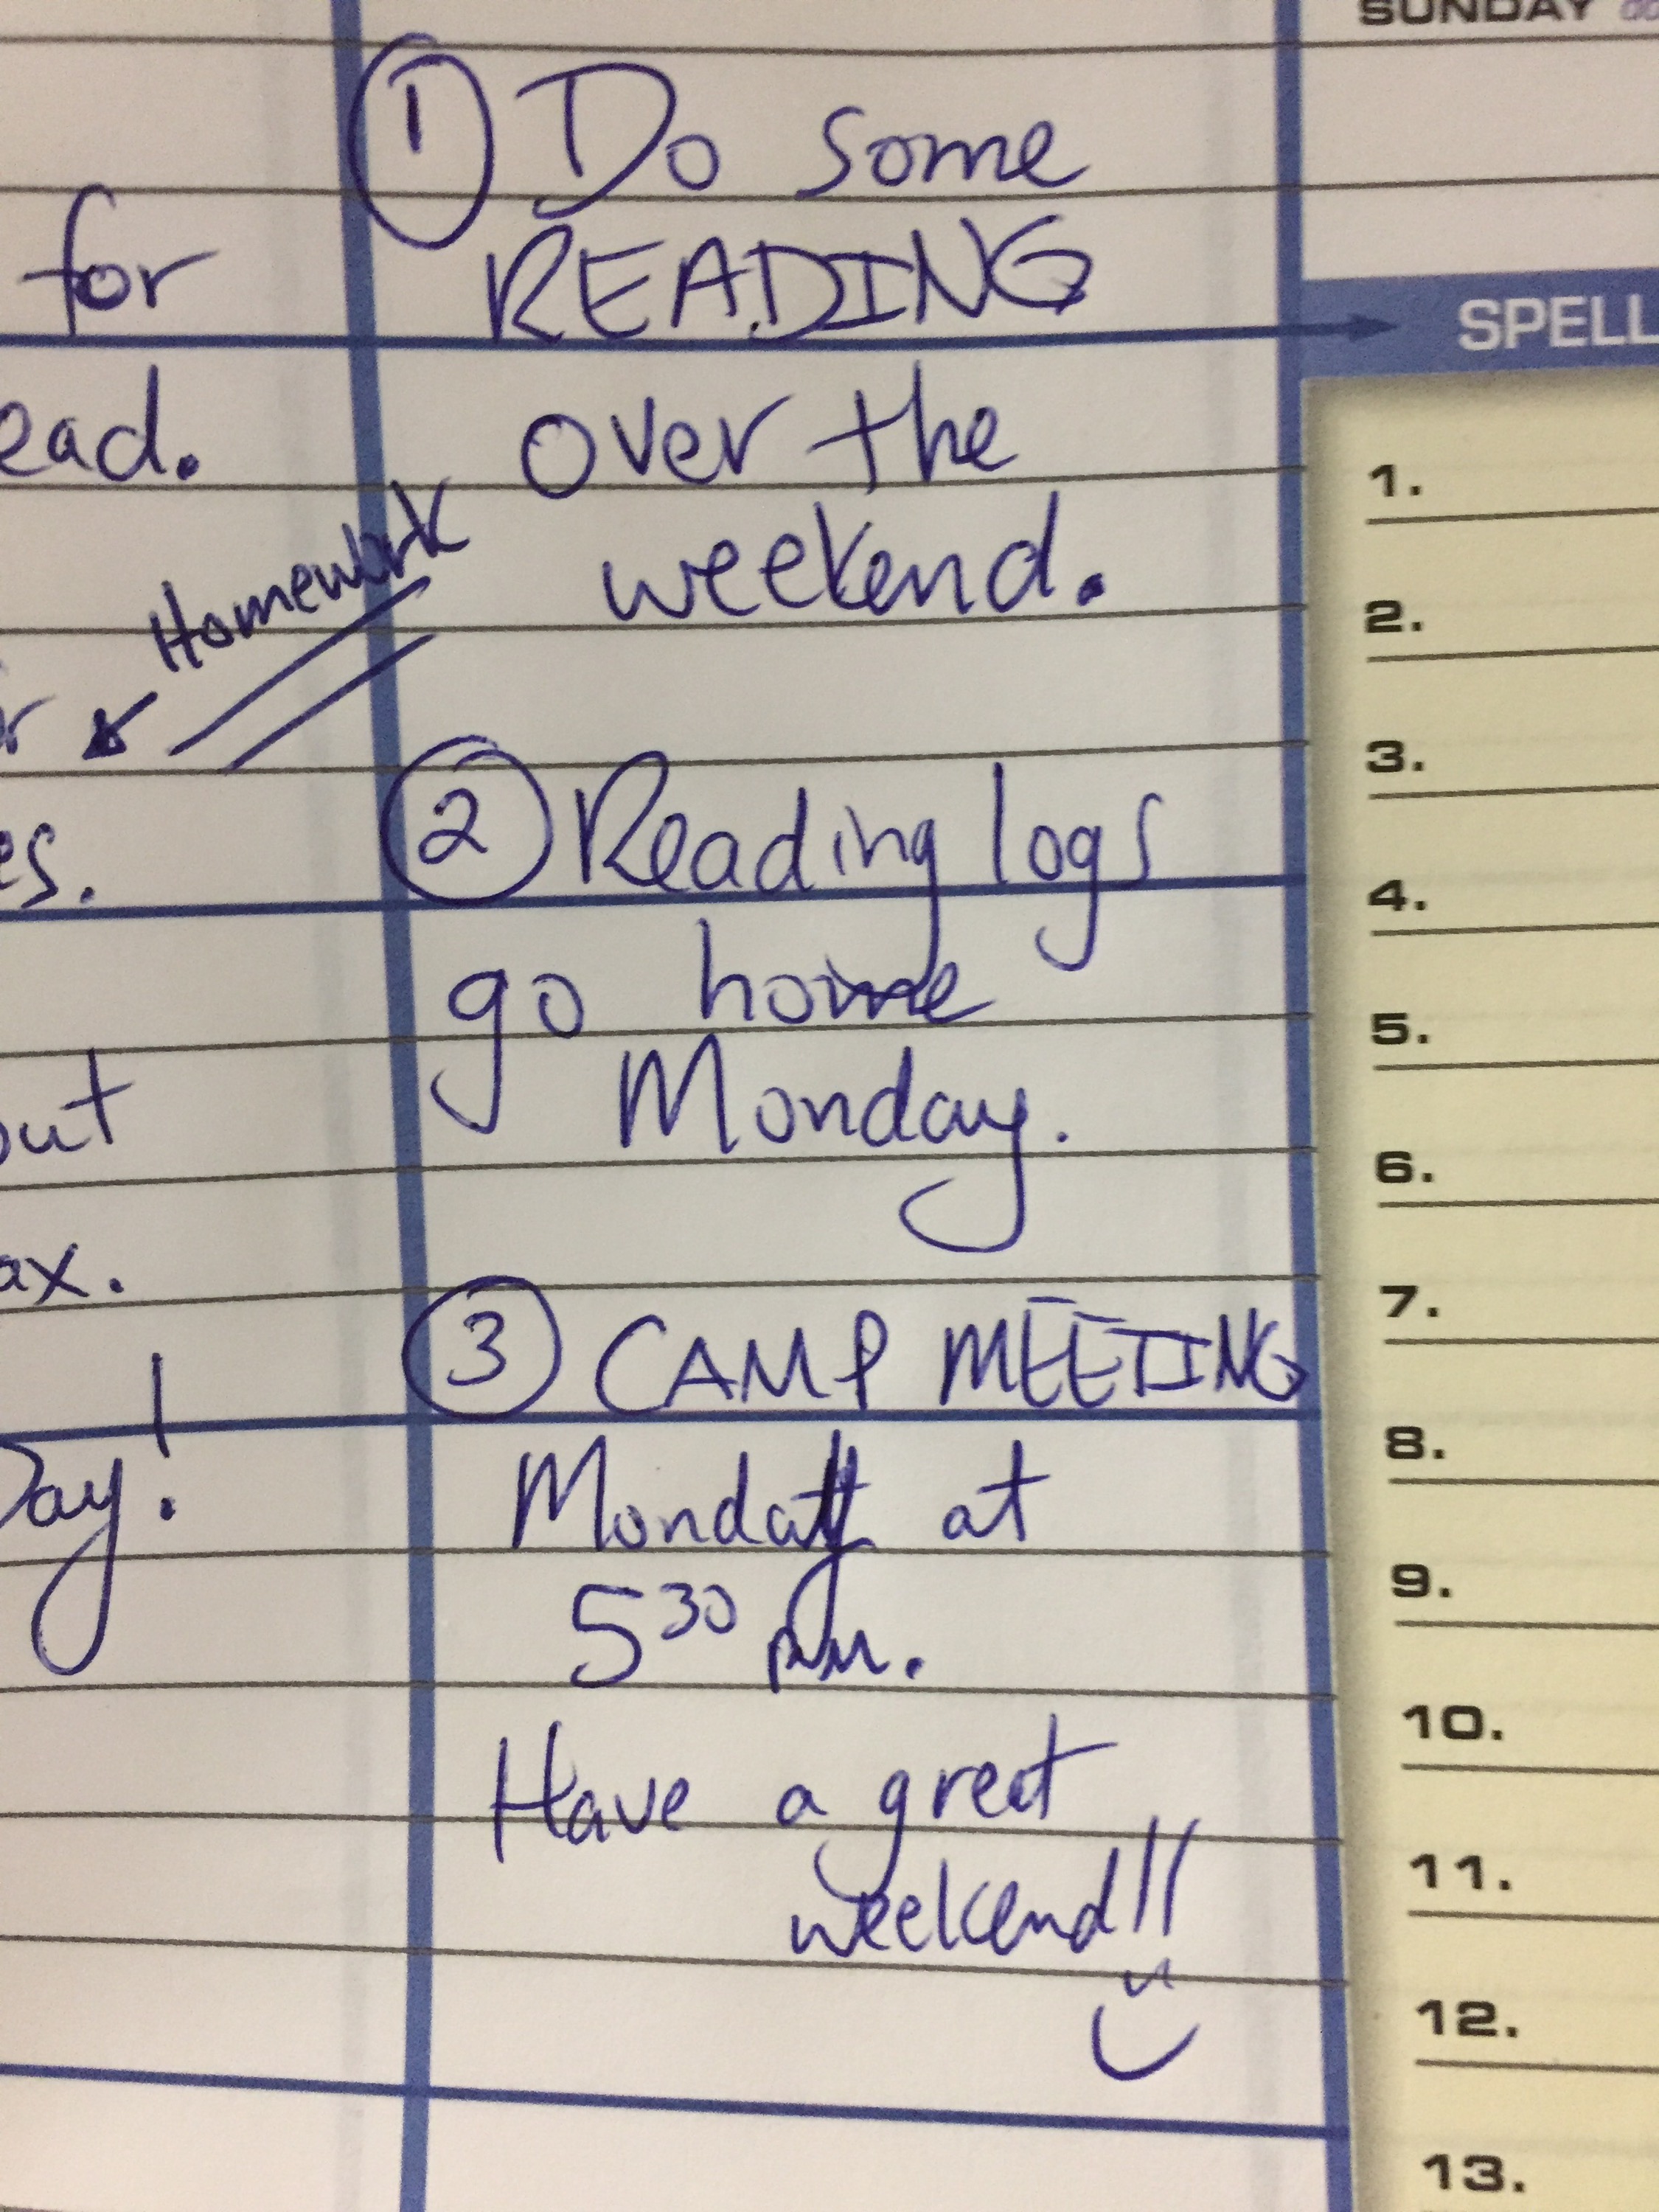 SUNDAY
for
ead.
Homework
es.
out
ax.
Day!
① Do some
READING
over the
weekend.
② Reading logs
go home
Monday.
③ CAMP MEETING
Monday at
5³⁰ pm.
Have a great
weekend!!
SPELL
1.
2.
3.
4.
5.
6.
7.
8.
9.
10.
11.
12.
13.